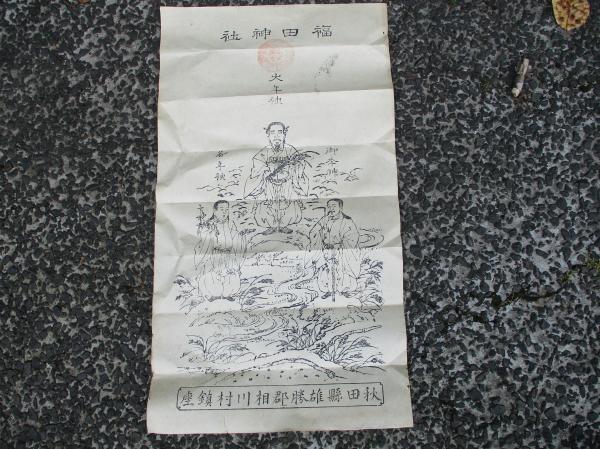 福田神社
大年神
御年神
若年神
秋田縣雄勝郡相川村鎮座